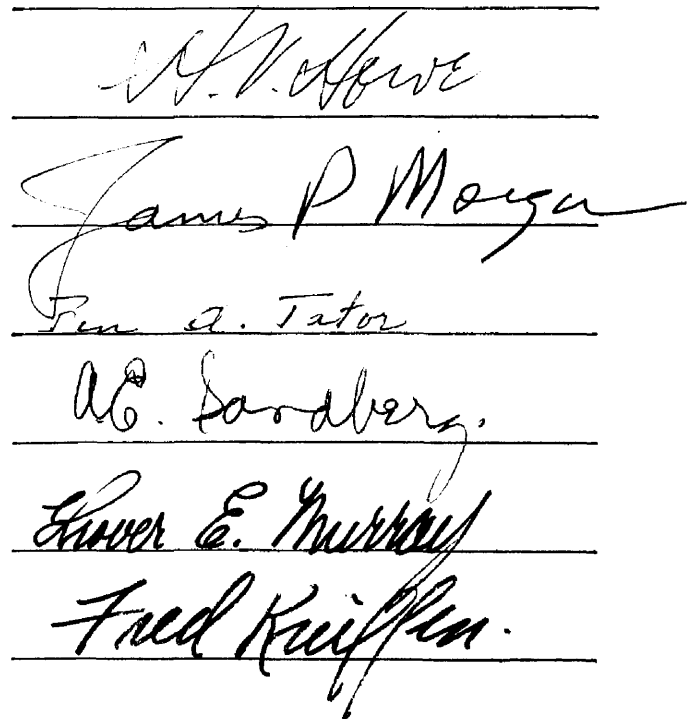 H. V. Howe
James P Morgan
Ben A. Tator
A.E. Sandberg.
Grover E. Murray
Fred Kniffen.